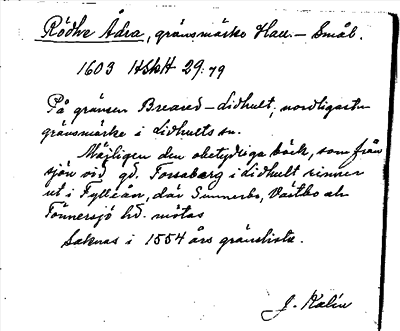 Rödhe Ådra, gränsmärke Hall. – Smål.
1603 HSkH 29:79
På gränsen Breared – Lidhult, nordligaste
gränsmärke i Lidhults sn.
Möjligen den obetydliga bäck, som från
sjön vid gd. Forsaberg i Lidhult rinner
ut i Fylleån, där Sunnerbo, Västbo och
Tönnersjö hd. mötas
Saknas i 1554 års gränslista.
J. Kalén